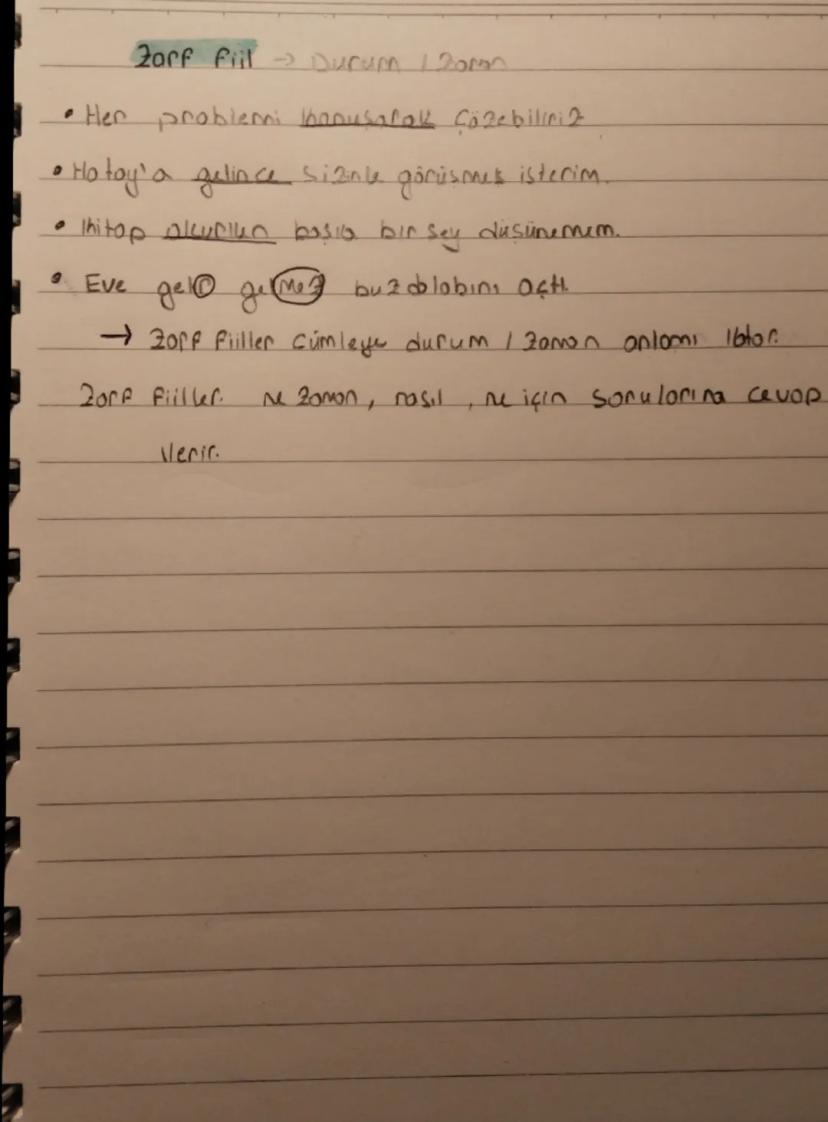 Zarf fiil → Durum / Zaman
• Her problemi konuşarak çözebiliriz
• Hatay'a gelince sizinle görüşmek isterim.
• Kitap okurken başka bir şey düşünemem.
• Eve gelir gelmez buzdolabını açtı.
→ Zarf fiiller cümleye durum / zaman anlamı katar.
Zarf fiiller. ne zaman, nasıl, ne için sorularına cevap
verir.